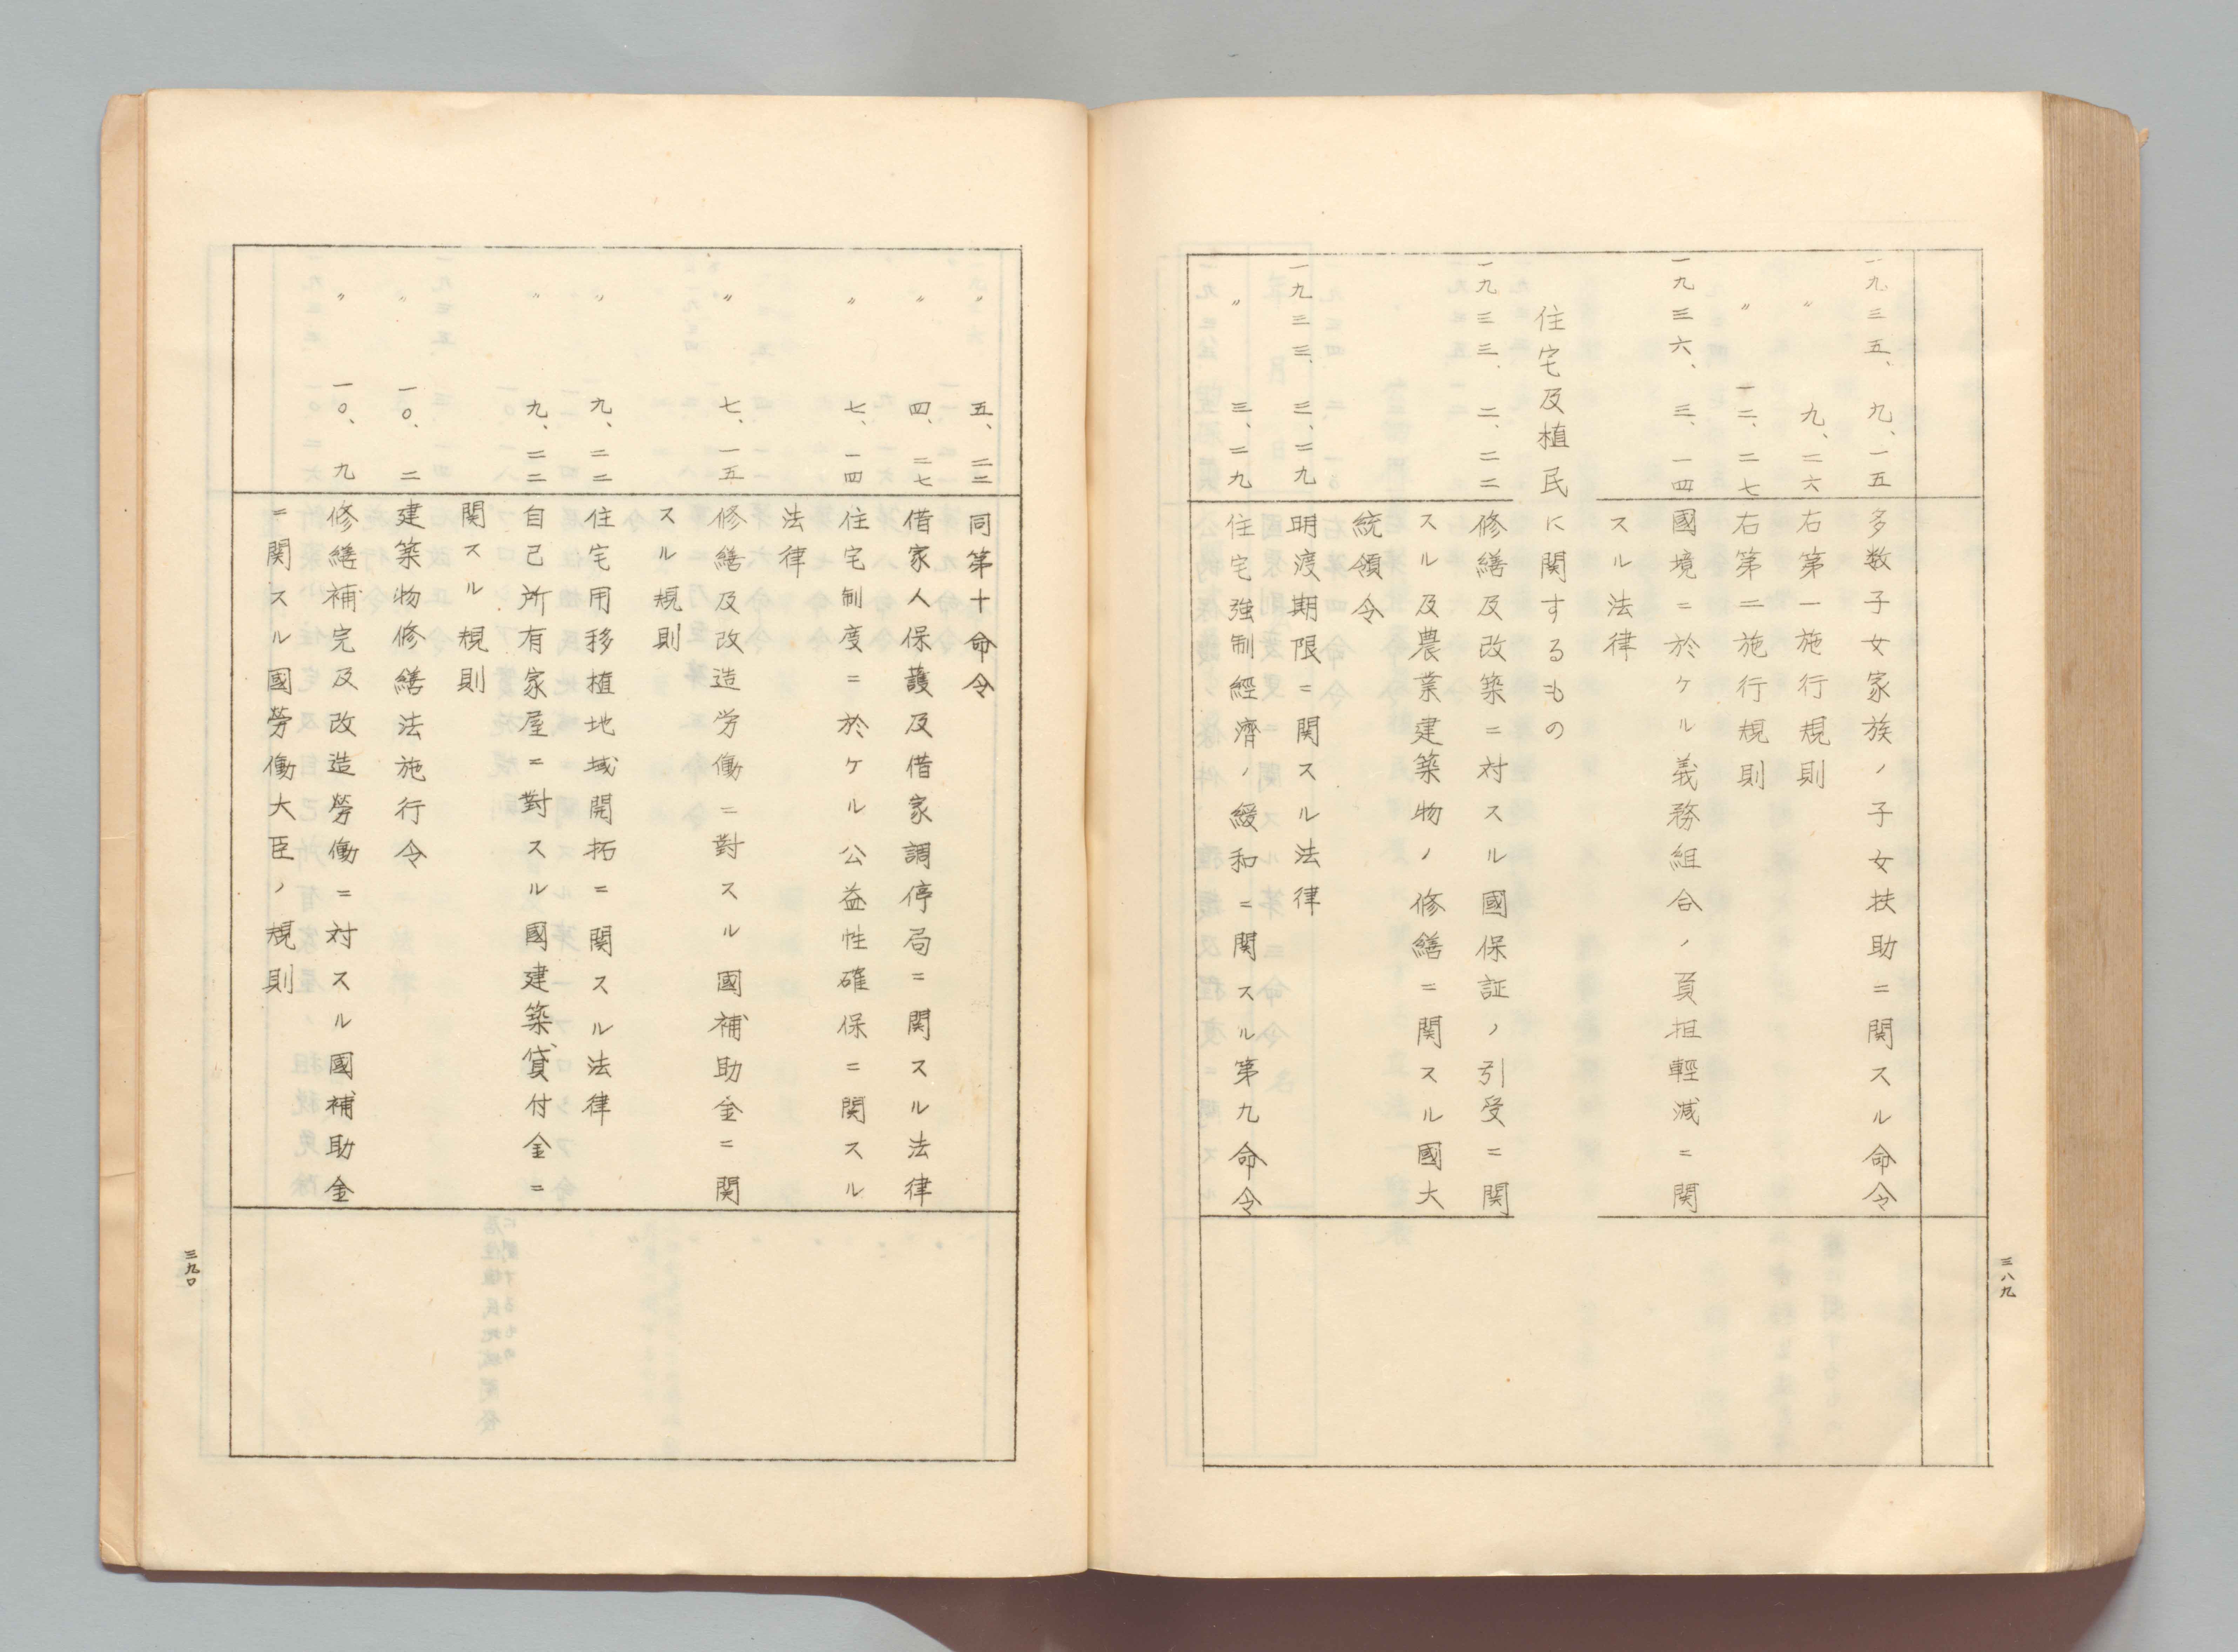 一九三五、九、一五 多数子女家族ノ子女扶助ニ関スル命令
〃 九、二六 右第一施行規則
〃 一二、二七 右第二施行規則
一九三六、三、一四 國境ニ於ケル義務組合ノ負担輕減ニ関
スル法律
住宅及植民に関するもの
一九三三、二、二二 修繕及改築ニ対スル國保証ノ引受ニ関
スル及農業建築物ノ修繕ニ関スル國大
統領令
一九三三、三、二九 明渡期限ニ関スル法律
〃 三、二九 住宅強制經濟ノ緩和ニ関スル第九命令
三八九
〃 五、二二 同第十命令
〃 四、二七 借家人保護及借家調停局ニ関スル法律
〃 七、一四 住宅制度ニ於ケル公益性確保ニ関スル
法律
〃 七、一五 修繕及改造労働ニ對スル國補助金ニ関
スル規則
〃 九、二二 住宅用移植地域開拓ニ関スル法律
〃 九、二二 自己所有家屋ニ對スル國建築貸付金ニ
関スル規則
〃 一〇、二 建築物修繕法施行令
〃 一〇、九 修繕補完及改造勞働ニ対スル國補助金
ニ関スル國勞働大臣ノ規則
三九〇